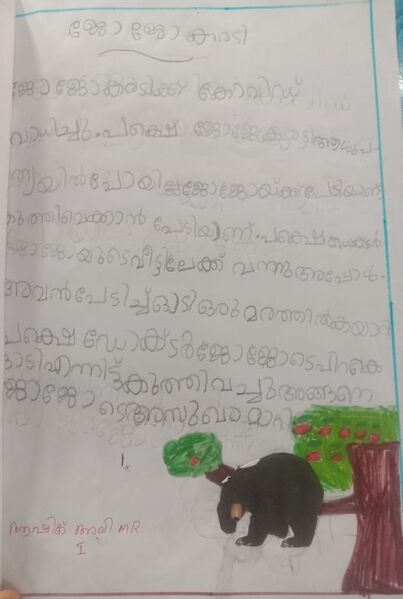 ജോ ജോ കരടി
ജോ ജോ കരടിക്ക് കോവിഡ്
ബാധിച്ചു. പക്ഷെ ജോജോകരടി ആശുപ-
ത്രിയിൽ പോയില്ല ജോജോയ്ക്ക് പേടിയാണ്
കുത്തിവെക്കാൻ പേടിയാണ്. പക്ഷെ ഡോക്ടർ
ജോജോയുടെ വീട്ടിലേക്ക് വന്നു അപ്പോൾ-
അവൻ പേടിച്ച് ഓടി ഒരു മരത്തിൽ കയറി
പക്ഷെ ഡോക്ടർ ജോജോടെ പിറകെ
ഓടി എന്നിട്ട് കുത്തി വച്ചു അങ്ങനെ
ജോജോ ടെ അസുഖം മാറി
ആഷിക് അലി M R
I